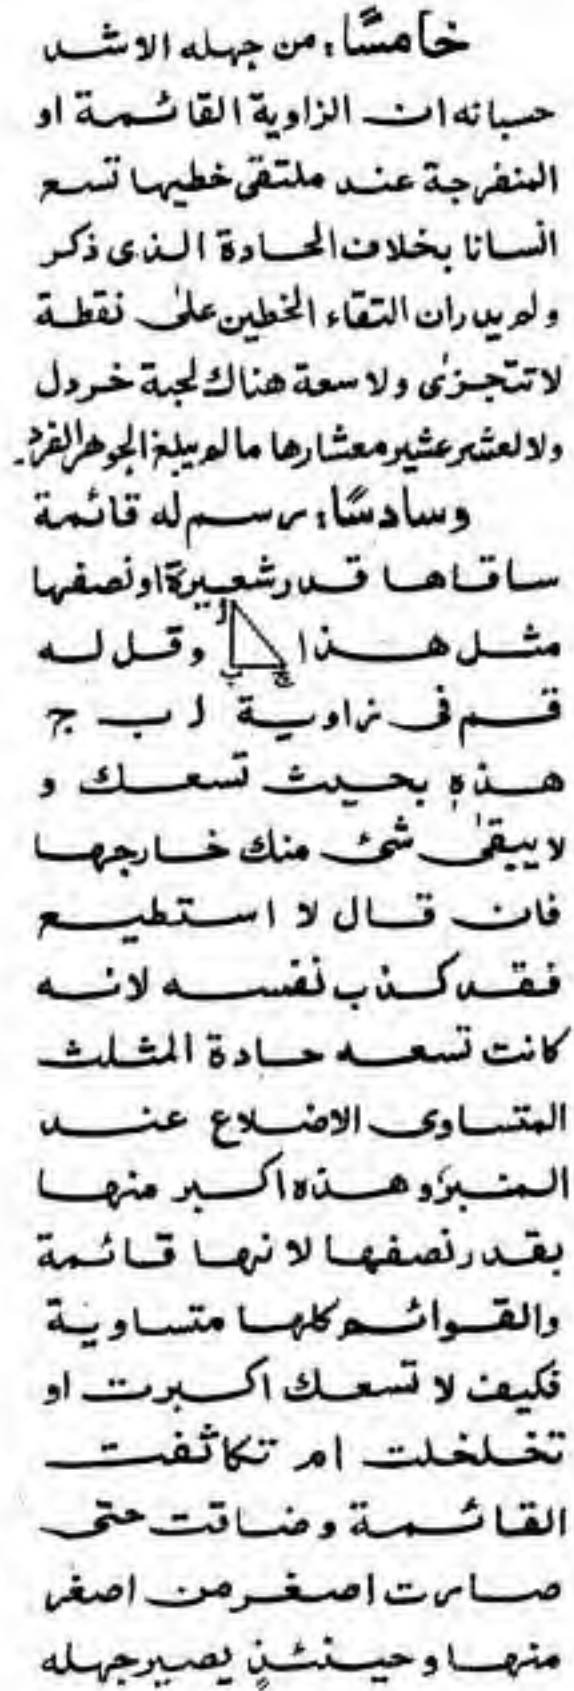 خامسًا: من جهله الاشد
حسبانه ان الزاوية القائمة او
المنفرجة عند ملتقى خطيها تسع
انسانا بخلاف الحادة الذى ذكر
ولم يدر ان التقاء الخطين على نقطة
لا تتجزى ولا سعة هناك لحبة خردل
ولا لعشر عشير معشارها ما لم يبلغ الجوهر الفرد۔
وسادسًا: رسم له قائمة
ساقاها قدر شعيرة او نصفها
مثل هذا ا ب ج وقل له
قم فى زاوية ا ب ج
هذه بحيث تسعك و
لا يبقى شئ منك خارجها
فان قال لا استطيع
فقد كذب نفسه لانه
كانت تسعه حادة المثلث
المتساوى الاضلاع عند
المنبر و هذه اكبر منها
بقدر نصفها لانها قائمة
والقوائم كلها متساوية
فكيف لا تسعك اكبرت او
تخلخلت ام تكاثفت
القائمة وضاقت حتى
صارت اصغر من اصغر
منها و حينئذٍ يصير جهله